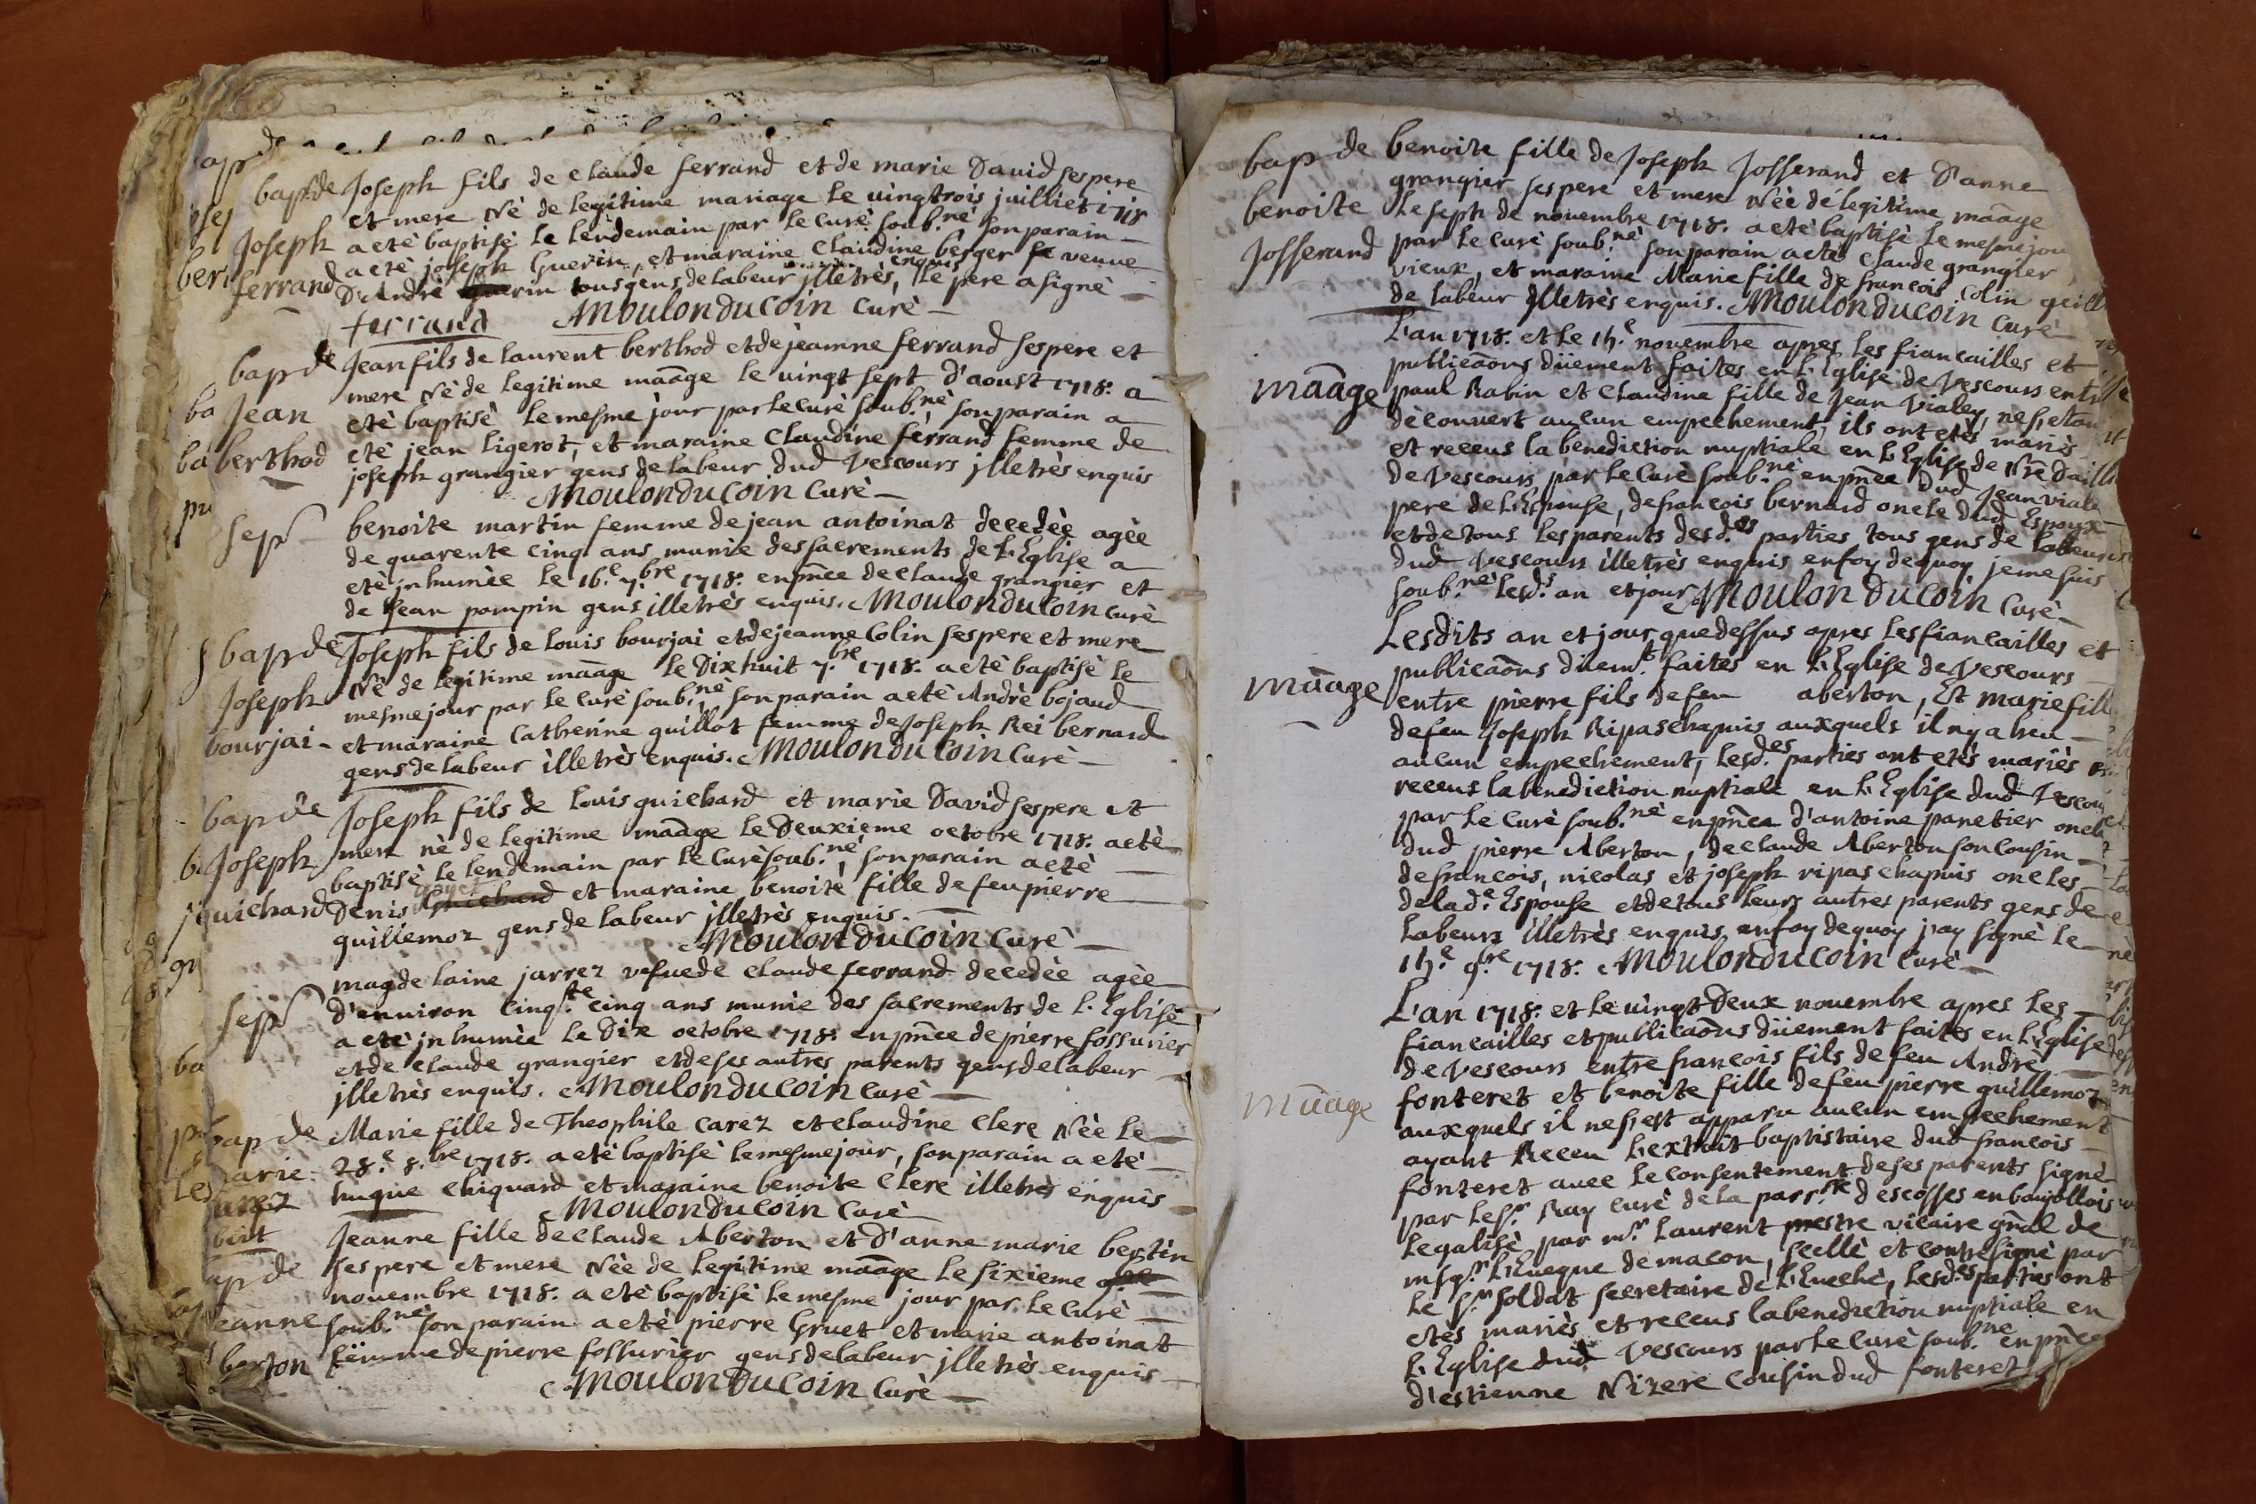 bap.de Joseph fils de claude ferrand et de marie David ses pere
et mere Nè de legitime mariage le vingtrois juilliet 1718
Joseph a etè baptisè le lendemain par le curè soub.nè son parain
ferrand a etè joseph Guerin, et maraine Claudine berger veuve
D'Andrè Guerin tous gens de labeur illetrès, enquis le pere a signè
ferrand Moulonducoin curè
bap de Jean fils de laurent berthod et de jeanne ferrand ses pere et
mere Nè de legitime māāge le vingt sept d'aoust 1718. a
Jean etè baptisè le mesme jour par le curè soub.nè, son parain a
berthod etè jean ligerot, et maraine Claudine ferrand femme de
joseph grangier gens de labeur dud Vescours jlletrès enquis
Moulonducoin Curè
sep benoite martin femme de jean antoinat decedèe agèe
de quarente cinq ans munie des sacrements de L'Eglise a
etè jnhumèe le 16.e 7.bre 1718. en pñce de claude grangier et
de Jean pompin gens illetrès enquis. Moulonducoin curè
bap de Joseph fils de Louis bourjai et de jeanne Colin ses pere et mere
Nè de legitime māāge le Dixhuit 7.bre 1718. a etè baptisè le
Joseph mesme jour par le curè soub.nè, son parain a etè Andrè bojaud
bourjai et maraine Catherine quillot femme de Joseph Rei bernard
gens de labeur illetrès enquis. Moulonducoin Curè
bap de Joseph fils de Louis guichard et marie David ses pere et
mere nè de legitime māāge le Deuxieme octobre 1718. a etè
Joseph baptisè le lendemain par le curè soub.nè, son parain a etè
guichard Denis et maraine benoite fille de feu pierre
guillemoz gens de labeur jlletrès enquis.
Moulonducoin Curè
magdelaine jarrez vefue de claude ferrand decedèe agèe
sep d'environ cinq.te cinq ans munie des sacrements de L'Eglise
a etè jnhumèe le Dix octobre 1718. en pñce de pierre fossurier
et de claude grangier et de ses autres parents gens de labeur
jlletrès enquis. Moulonducoin Curè
bap de Marie fille de Theophile Carez et claudine Clere Nèe le
marie 28.e 8.bre 1718. a etè baptisè le mesme jour, son parain a etè
carez hugue chiquard et maraine benoite Clere illetrès enquis
Moulonducoin Curè
Jeanne fille de claude Aberton et D'anne marie bertin
bap de ses pere et mere Nèe de legitime māāge le sixieme
novembre 1718. a etè baptisè le mesme jour par le Curè
jeanne soub.nè son parain a etè pierre Gruet et marie antoinat
berton femme de pierre fossurier gens de labeur jlletrès enquis
Moulonducoin Curè
bap de benoite fille de Joseph Josserand et D'anne
grangier ses pere et mere Nèe de legitime māāge
benoite Le sept de novembre 1718. a etè baptisè le mesme jou
Josserand par le curè soub.nè son parain a etè claude grangier
vieux, et maraine Marie fille de francois Colin
de labeur Illetrès enquis. Moulonducoin Curè
L'an 1718. et le 15.e novembre apres les fiancailles et
publicaõns düement faites en L'Eglise de Vescours entr
māāge paul Rabin et claudine fille de Jean Vialey, ne s'etan
dècouvert aucun empechement, ils ont etès mariès
et receus la benediction nuptiale en L'Eglise de Nre Dai
de Vescours par le Curè soub.nè en pñce dud Jean viale
pere de L'Espouse, de francois bernard oncle dud Espoux
et de tous les parents desd.es parties tous gens de labeurs
dud Vescours illetrès enquis en foy de quoy je me suis
soub.nè lesd.s an et jour Moulon Ducoin Curè
Lesdits an et jour que dessus apres les fiancailles et
publicaõns düem.t faites en L'Eglise de Vescours
māāge entre pierre fils de feu aberton, Et marie fill
de feu Joseph Ripaschapuis auxquels il ny a heu
aucun empechement, Lesd.es parties ont etès mariès
receus la benediction nuptiale en L'Eglise dud Vescou
par le Curè soub.nè en pñce d'antoine panetier oncl
dud pierre Aberton, de claude Aberton son cousin
de francois, nicolas et joseph ripaschapuis oncles
de lad.e Espouse et de tous leurs autres parents gens de
labeurs illetrès enquis en foy de quoy j'ay signè le
15.e 9.bre 1718. Moulonducoin Curè
L'an 1718. et le vingt Deux novembre apres les
fiancailles et publicaõns düement faites en L'Eglise
de Vescours entre francois fils de feu Andrè
māāge fonteret et benoite fille de feu pierre guillemoz
auxquels il ne s'est apparu aucun empechement
ayant Receu L'extrait baptistaire dud francois
fonteret avec le consentement de ses parents signè
par le s.r Ray curè de la parr.se descosses en baujollois
legalisè par m.r Laurent prestre vicaire gñal de
msg.r L'Eueque de macon, scellè et contresignè par
le s.r soldat secretaire de L'Euechè, Lesd.es parties ont
etès mariès et receus la benediction nuptiale en
L'Eglise dud Vescours par le Curè soub.ne en pñce
d'estienne Nizere Cousin dud fonteret